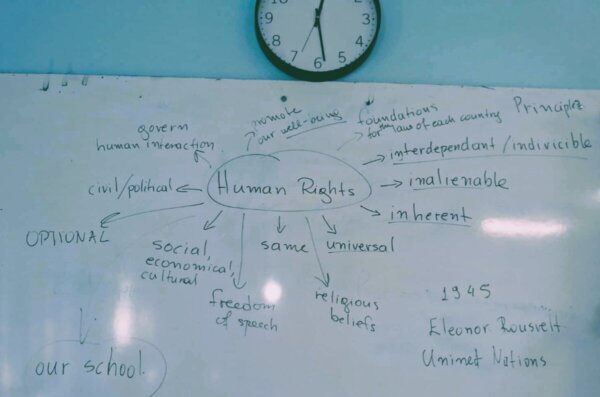 10
9
8
7
6
5
4
3
2
promote
our well-being
foundations
for the law of each country
Principles
govern
human interaction
interdependant/indivicible
civil/political
Human Rights
inalienable
inherent
OPTIONAL
social,
economical,
cultural
same
universal
freedom
of speech
religious
beliefs
1945
Eleonor
Nations
our school.